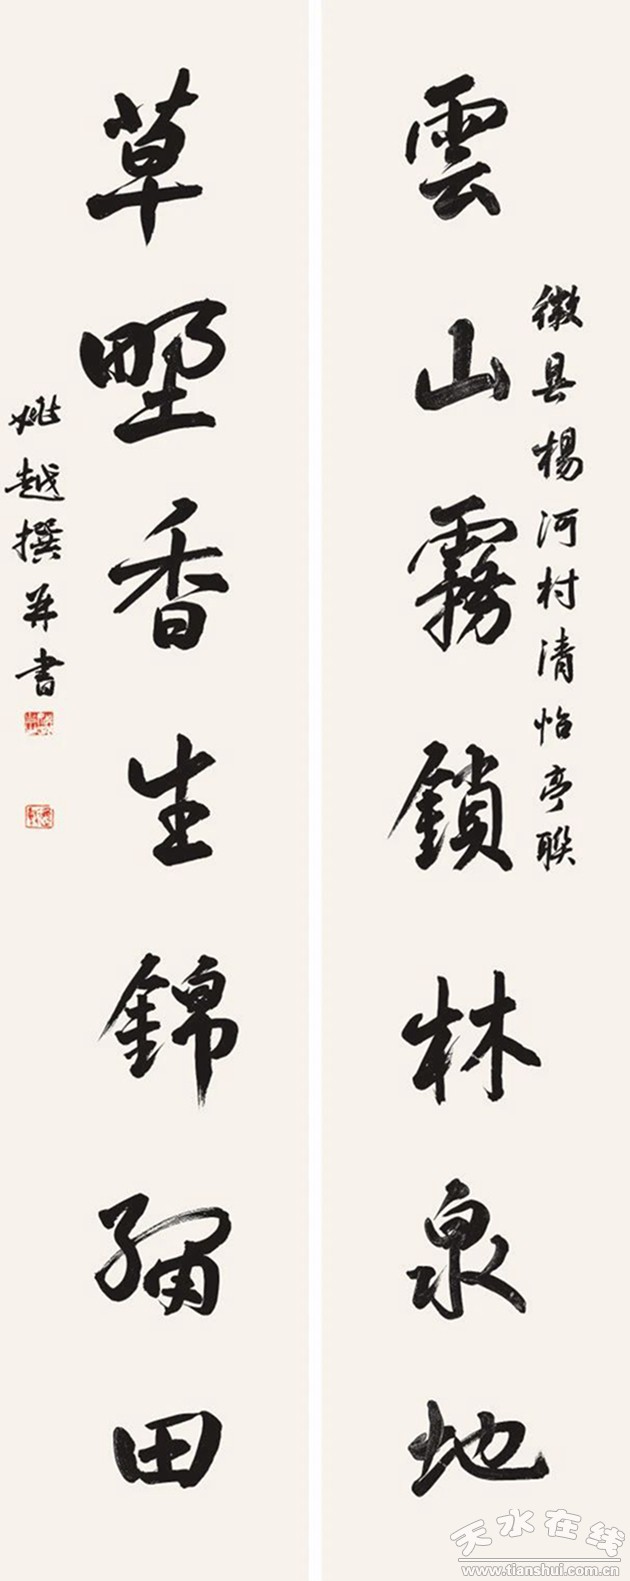 雲山霧鎖林泉地
徽县楊河村清怡亭联
草野香生錦繡田
姚越撰并書
天水在线
www.tianshui.com.cn